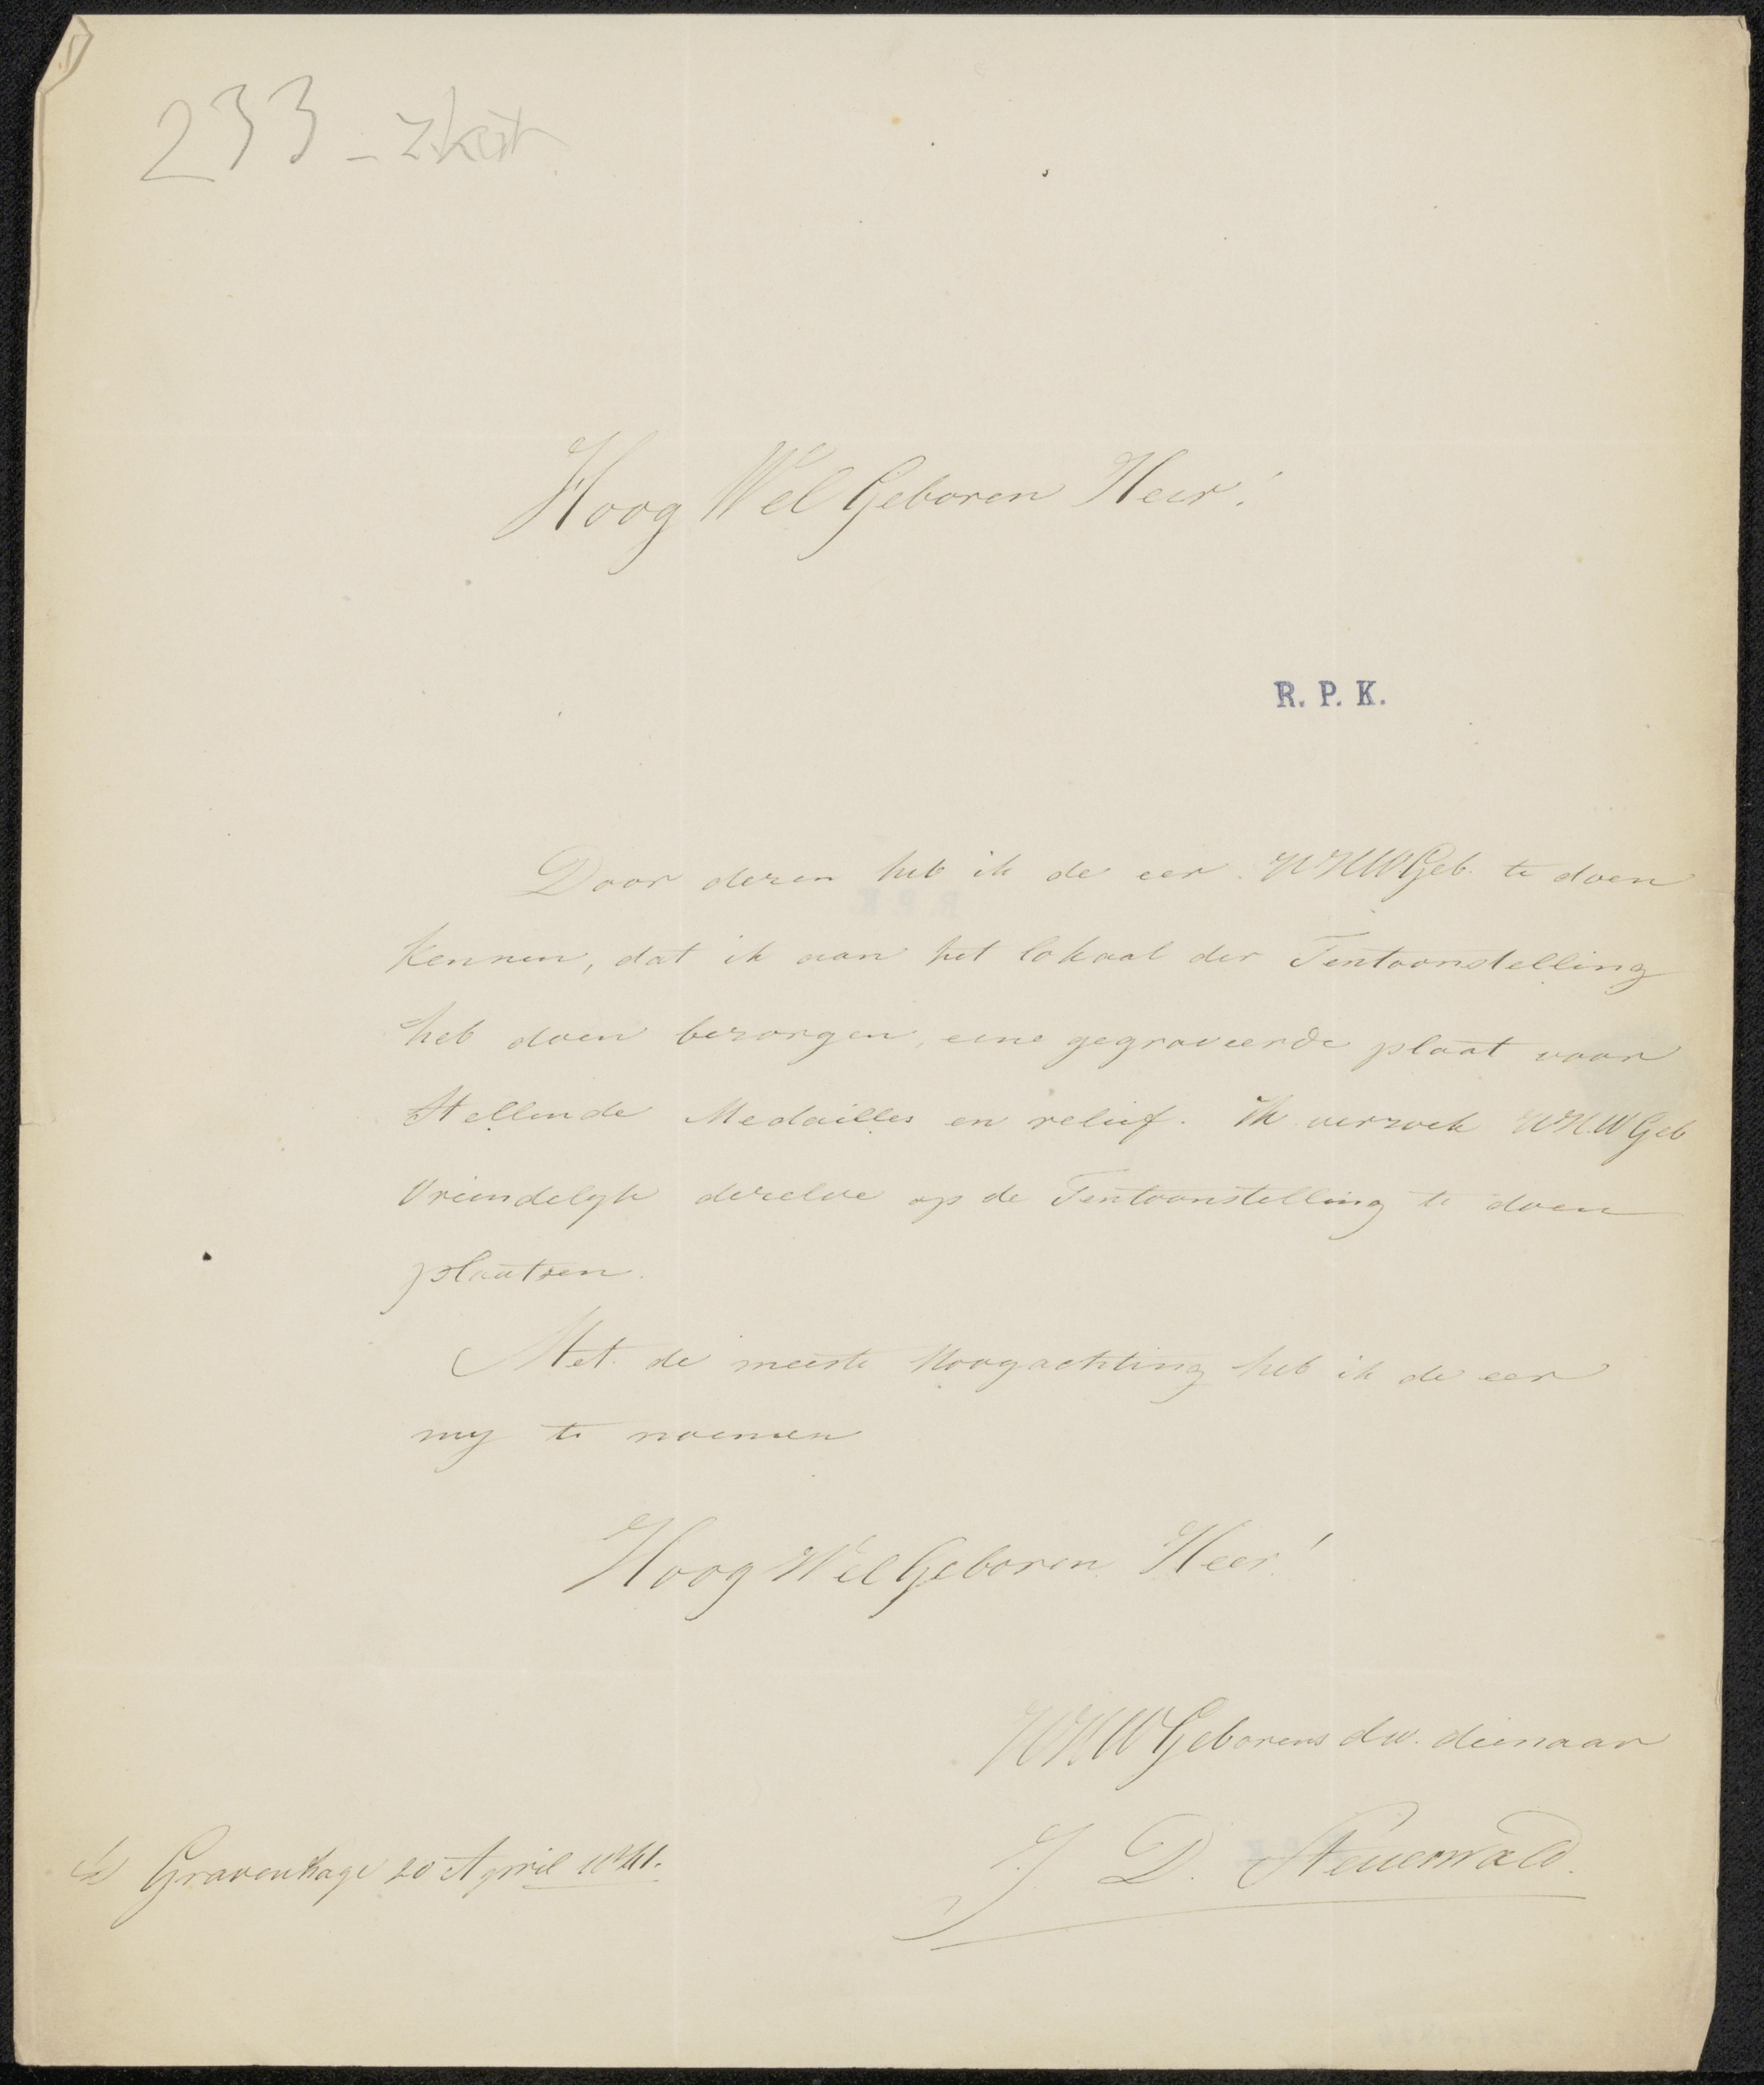 233 -
Hoog Wel Geboren Heer!
R. P. K.
Door dezen heb ik de eer UHWGeb. te doen
kennen, dat ik aan het lokaal der Tentoonstelling
heb doen bezorgen, eene graveerde plaat voor
Stellende Medailles en relief. Ik verzoek UHWGeb
Vriendelyk dezelve op de Tentoonstelling te doen
plaatsen.
Met de meeste Hoogachting heb ik de eer
my te noemen
Hoog Wel Geboren Heer!
UHWGeborens dw. dienaar
J. D. Steuerwald.
Gravenhage 20 April 1841.